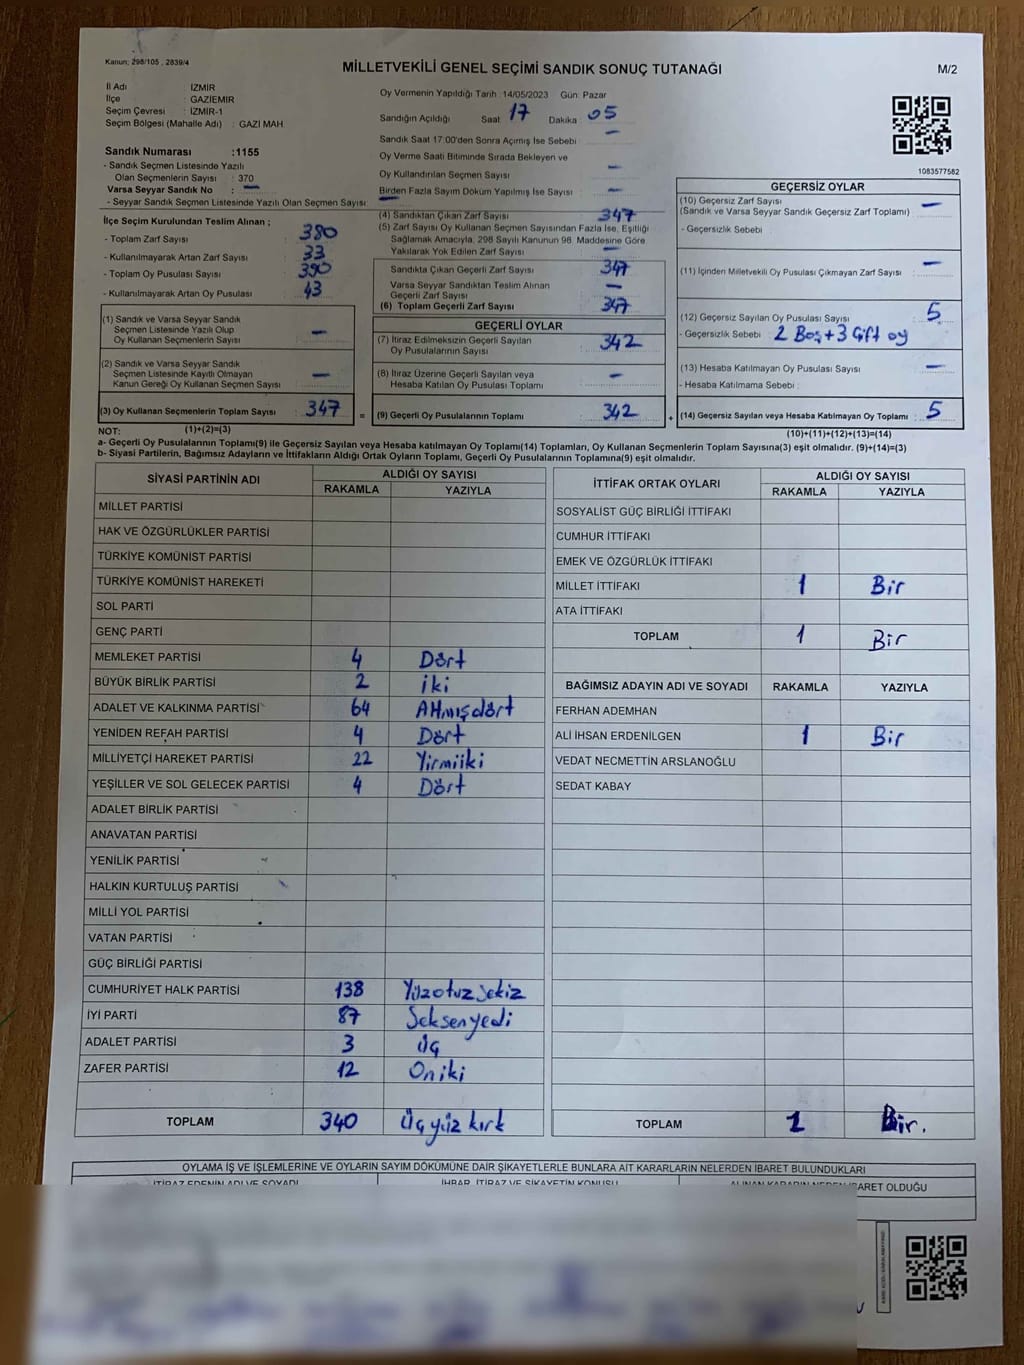 Kanun; 298/105 , 2839/4
MİLLETVEKİLİ GENEL SEÇİMİ SANDIK SONUÇ TUTANAĞI
M/2
İl Adı : İZMİR
İlçe : GAZİEMİR
Seçim Çevresi : İZMİR-1
Seçim Bölgesi (Mahalle Adı) : GAZİ MAH.
Oy Vermenin Yapıldığı Tarih :14/05/2023 Gün: Pazar
Sandığın Açıldığı Saat 17 Dakika 05
Sandık Saat 17:00'den Sonra Açımış İse Sebebi : —
Oy Verme Saati Bitiminde Sırada Bekleyen ve
Oy Kullandırılan Seçmen Sayısı : —
Birden Fazla Sayım Döküm Yapılmış İse Sayısı : —
1083577582
Sandık Numarası :1155
- Sandık Seçmen Listesinde Yazılı
Olan Seçmenlerin Sayısı : 370
Varsa Seyyar Sandık No : —
- Seyyar Sandık Seçmen Listesinde Yazılı Olan Seçmen Sayısı : —
İlçe Seçim Kurulundan Teslim Alınan ;
- Toplam Zarf Sayısı : 380
- Kullanılmayarak Artan Zarf Sayısı : 33
- Toplam Oy Pusulası Sayısı : 390
- Kullanılmayarak Artan Oy Pusulası : 43
(1) Sandık ve Varsa Seyyar Sandık
Seçmen Listesinde Yazılı Olup
Oy Kullanan Seçmenlerin Sayısı : —
(2) Sandık ve Varsa Seyyar Sandık
Seçmen Listesinde Kayıtlı Olmayan
Kanun Gereği Oy Kullanan Seçmen Sayısı : —
(3) Oy Kullanan Seçmenlerin Toplam Sayısı : 347 =
(1)+(2)=(3)
(4) Sandıktan Çıkan Zarf Sayısı : 347
(5) Zarf Sayısı Oy Kullanan Seçmen Sayısından Fazla İse, Eşitliği
Sağlamak Amacıyla, 298 Sayılı Kanunun 98. Maddesine Göre
Yakılarak Yok Edilen Zarf Sayısı : —
Sandıkta Çıkan Geçerli Zarf Sayısı : 347
Varsa Seyyar Sandıktan Teslim Alınan
Geçerli Zarf Sayısı : —
(6) Toplam Geçerli Zarf Sayısı : 347
GEÇERLİ OYLAR
(7) İtiraz Edilmeksizin Geçerli Sayılan
Oy Pusulalarının Sayısı : 342
(8) İtiraz Üzerine Geçerli Sayılan veya
Hesaba Katılan Oy Pusulası Toplamı : —
(9) Geçerli Oy Pusulalarının Toplamı : 342 +
GEÇERSİZ OYLAR
(10) Geçersiz Zarf Sayısı : —
(Sandık ve Varsa Seyyar Sandık Geçersiz Zarf Toplamı)
- Geçersizlik Sebebi :
(11) İçinden Milletvekili Oy Pusulası Çıkmayan Zarf Sayısı : —
(12) Geçersiz Sayılan Oy Pusulası Sayısı : 5
- Geçersizlik Sebebi : 2 Boş+3 Çift oy
(13) Hesaba Katılmayan Oy Pusulası Sayısı : —
- Hesaba Katılmama Sebebi :
(14) Geçersiz Sayılan veya Hesaba Katılmayan Oy Toplamı : 5
(10)+(11)+(12)+(13)=(14)
NOT:
a- Geçerli Oy Pusulalarının Toplamı(9) ile Geçersiz Sayılan veya Hesaba katılmayan Oy Toplamı(14) Toplamları, Oy Kullanan Seçmenlerin Toplam Sayısına(3) eşit olmalıdır. (9)+(14)=(3)
b- Siyasi Partilerin, Bağımsız Adayların ve İttifakların Aldığı Ortak Oyların Toplamı, Geçerli Oy Pusulalarının Toplamına(9) eşit olmalıdır.
SİYASİ PARTİNİN ADI ALDIĞI OY SAYISI
RAKAMLA YAZIYLA
MİLLET PARTİSİ
HAK VE ÖZGÜRLÜKLER PARTİSİ
TÜRKİYE KOMÜNİST PARTİSİ
TÜRKİYE KOMÜNİST HAREKETİ
SOL PARTİ
GENÇ PARTİ
MEMLEKET PARTİSİ 4 Dört
BÜYÜK BİRLİK PARTİSİ 2 iki
ADALET VE KALKINMA PARTİSİ 64 Altmışdört
YENİDEN REFAH PARTİSİ 4 Dört
MİLLİYETÇİ HAREKET PARTİSİ 22 Yirmiiki
YEŞİLLER VE SOL GELECEK PARTİSİ 4 Dört
ADALET BİRLİK PARTİSİ
ANAVATAN PARTİSİ
YENİLİK PARTİSİ
HALKIN KURTULUŞ PARTİSİ
MİLLİ YOL PARTİSİ
VATAN PARTİSİ
GÜÇ BİRLİĞİ PARTİSİ
CUMHURİYET HALK PARTİSİ 138 Yüzotuzsekiz
İYİ PARTİ 87 Seksenyedi
ADALET PARTİSİ 3 Üç
ZAFER PARTİSİ 12 Oniki
TOPLAM 340 Üçyüz kırk
İTTİFAK ORTAK OYLARI ALDIĞI OY SAYISI
RAKAMLA YAZIYLA
SOSYALİST GÜÇ BİRLİĞİ İTTİFAKI
CUMHUR İTTİFAKI
EMEK VE ÖZGÜRLÜK İTTİFAKI
MİLLET İTTİFAKI 1 Bir
ATA İTTİFAKI
TOPLAM 1 Bir
BAĞIMSIZ ADAYIN ADI VE SOYADI RAKAMLA YAZIYLA
FERHAN ADEMHAN
ALİ İHSAN ERDENİLGEN 1 Bir
VEDAT NECMETTİN ARSLANOĞLU
SEDAT KABAY
TOPLAM 1 Bir.
OYLAMA İŞ VE İŞLEMLERİNE VE OYLARIN SAYIM DÖKÜMÜNE DAİR ŞİKAYETLERLE BUNLARA AİT KARARLARIN NELERDEN İBARET BULUNDUKLARI
İTİRAZ EDENİN ADI VE SOYADI İHBAR, İTİRAZ VE ŞİKAYETİN KONUSU ALINAN KARARIN NEDEN İBARET OLDUĞU